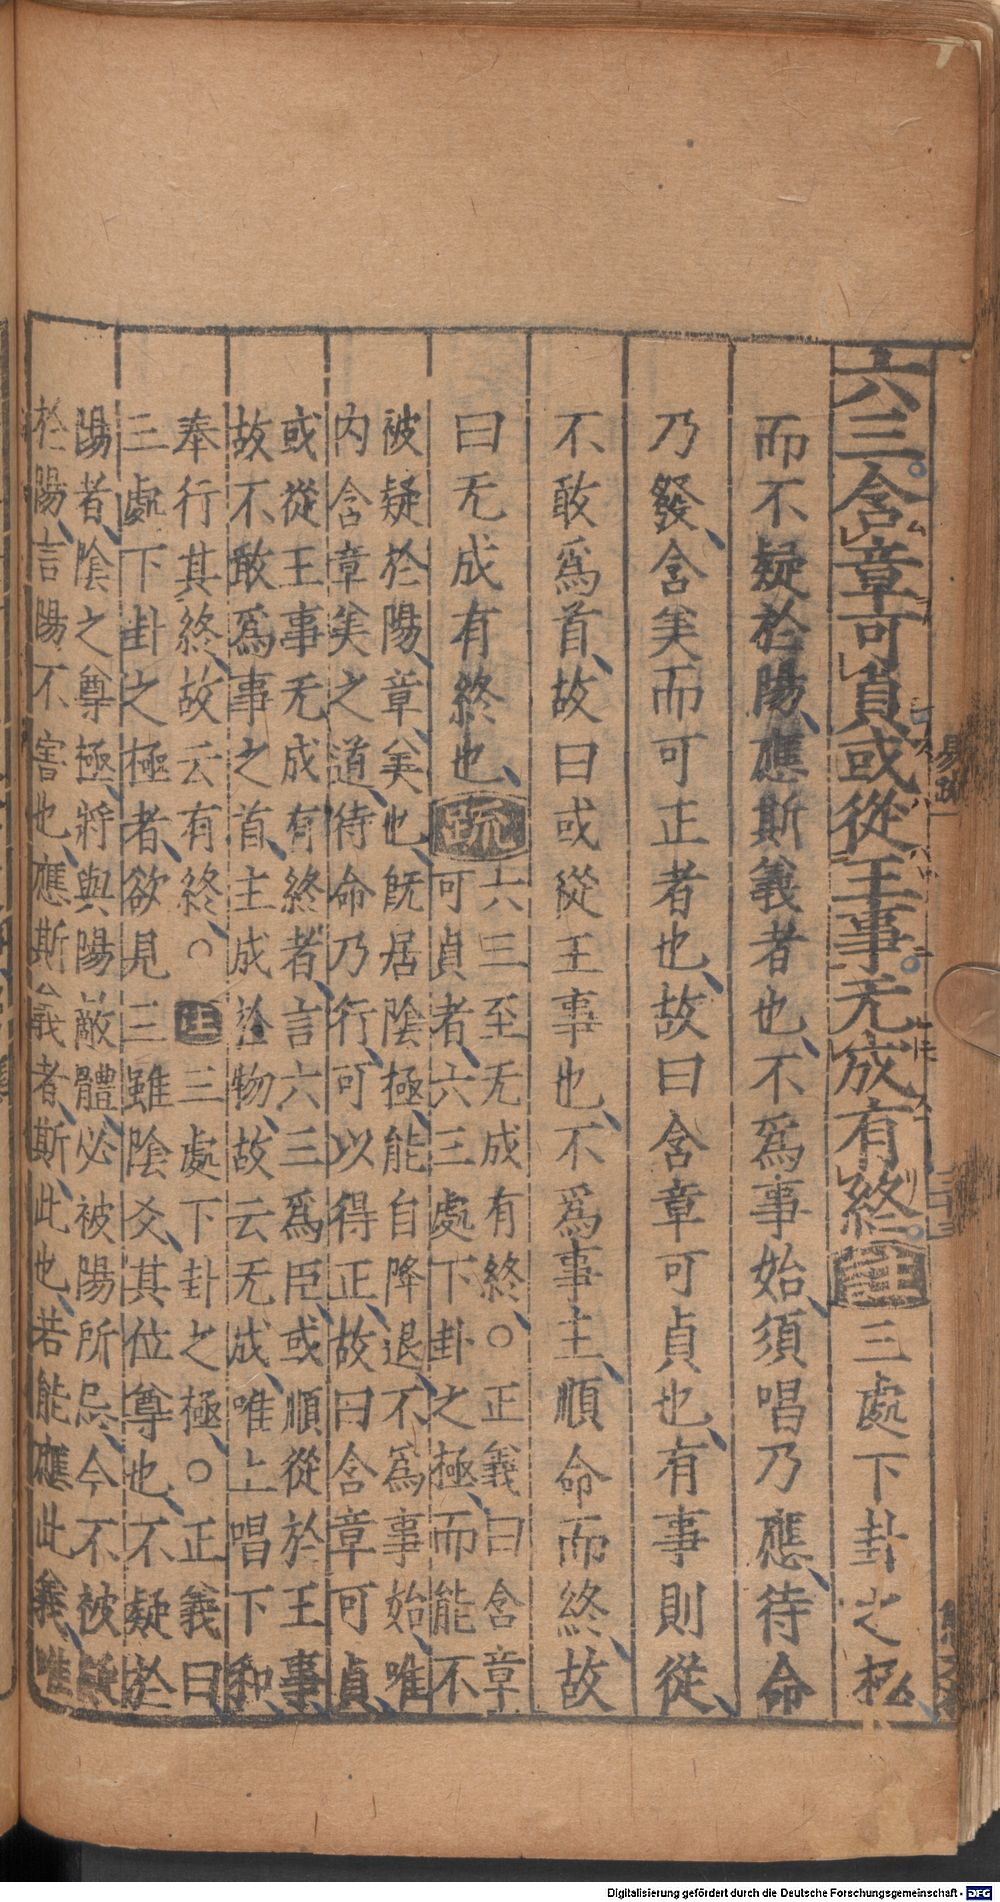 六三含章可貞或從王事无成有終注三處下卦之極
而不疑於陽應斯義者也不爲事始須唱乃應待命
乃發含美而可正者也故曰含章可貞也有事則從
不敢爲首故曰或從王事也不爲事主順命而終故
曰无成有終也疏
六三至无成有終○正義曰含章
可貞者六三處下卦之極而能不
被疑於陽章美也既居陰極能自降退不爲事始唯
内含章美之道待命乃行可以得正故曰含章可貞
或從王事无成有終者言六三爲臣或順從於王事
故不敢爲事之首主成於物故云无成唯上唱下和
奉行其終故云有終○注三處下卦之極○正義曰
三處下卦之極者欲見三雖陰爻其位尊也不疑於
陽者陰之尊極將與陽敵體必被陽所忌今不被疑
於陽言陽不害也應斯義者斯此也若能應此義唯
易疏一
二十三
Digitalisierung gefördert durch die Deutsche Forschungsgemeinschaft - DFG